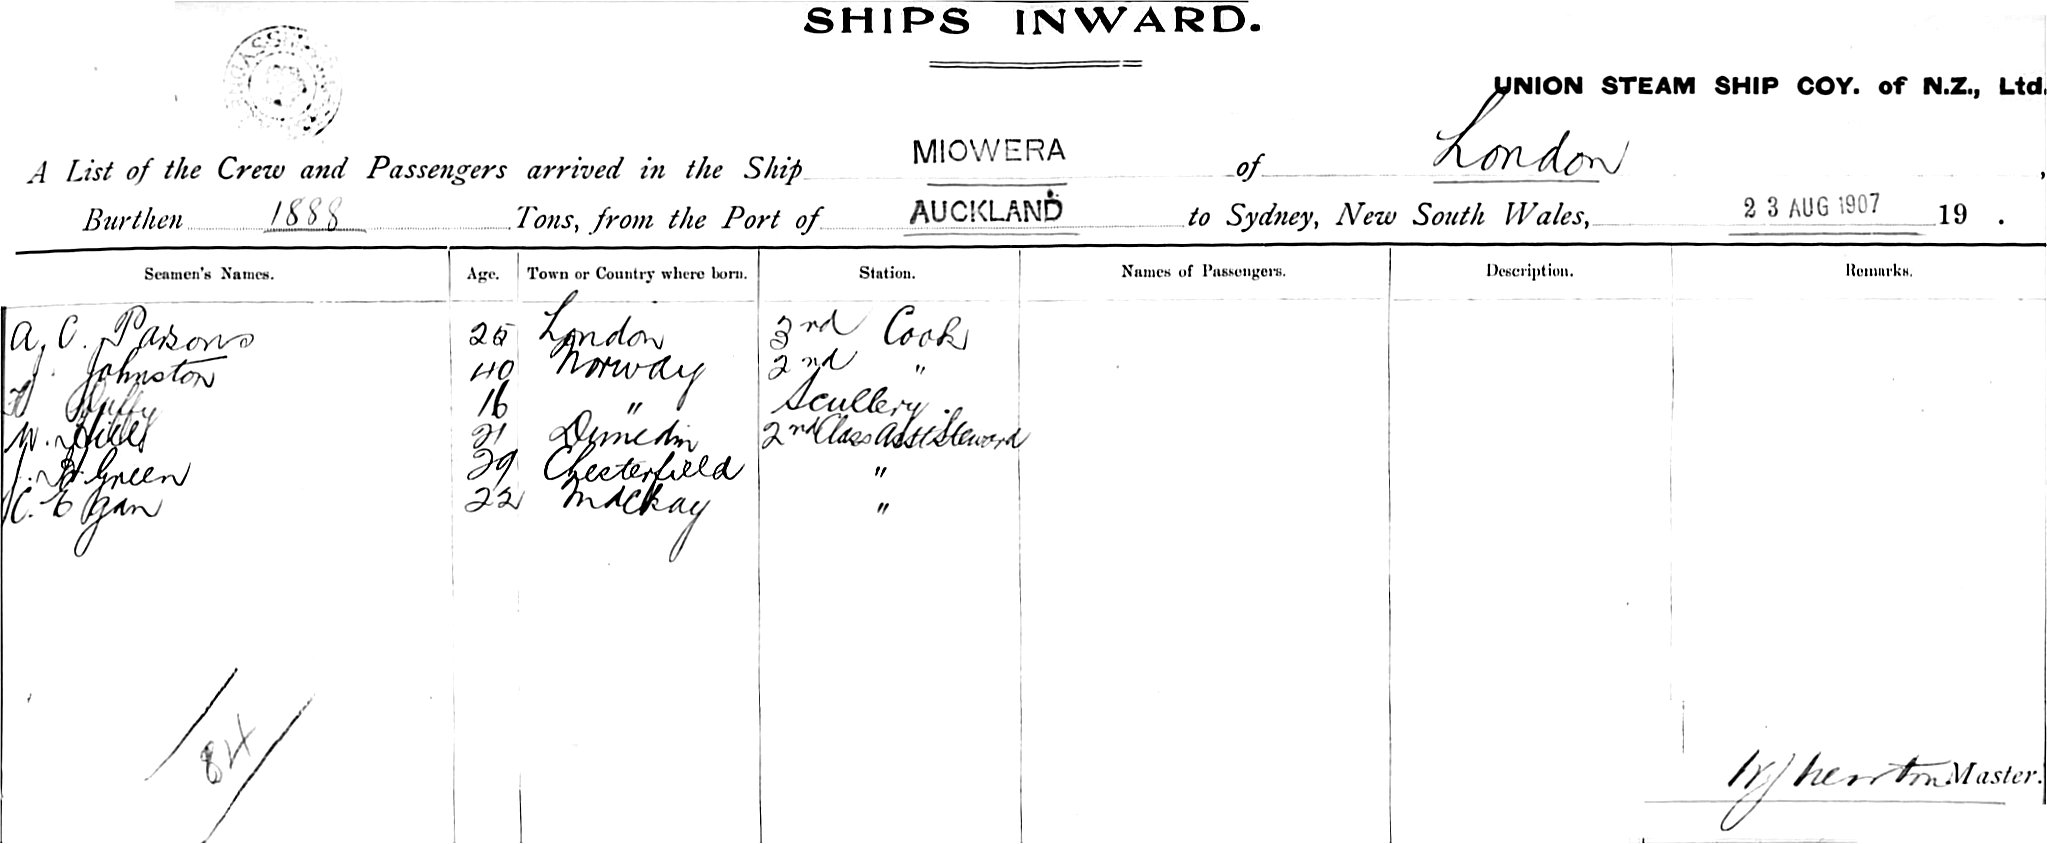 SHIPS INWARD.
UNION STEAM SHIP COY. of N.Z., Ltd.
A List of the Crew and Passengers arrived in the Ship MIOWERA of London,
Burthen 1888 Tons, from the Port of AUCKLAND to Sydney, New South Wales, 23 AUG 1907 19 .
Seamen's Names. Age. Town or Country where born. Station. Names of Passengers. Description. Remarks.
A. C. Parsons 25 London 3rd Cook
J. Johnston 40 Norway 2nd "
Duffy 16 " Scullery.
W. Hills 21 Dunedin 2nd Class Asst Steward
J. H. Green 29 Chesterfield "
C. Egan 22 Mackay "
84
Newton Master.